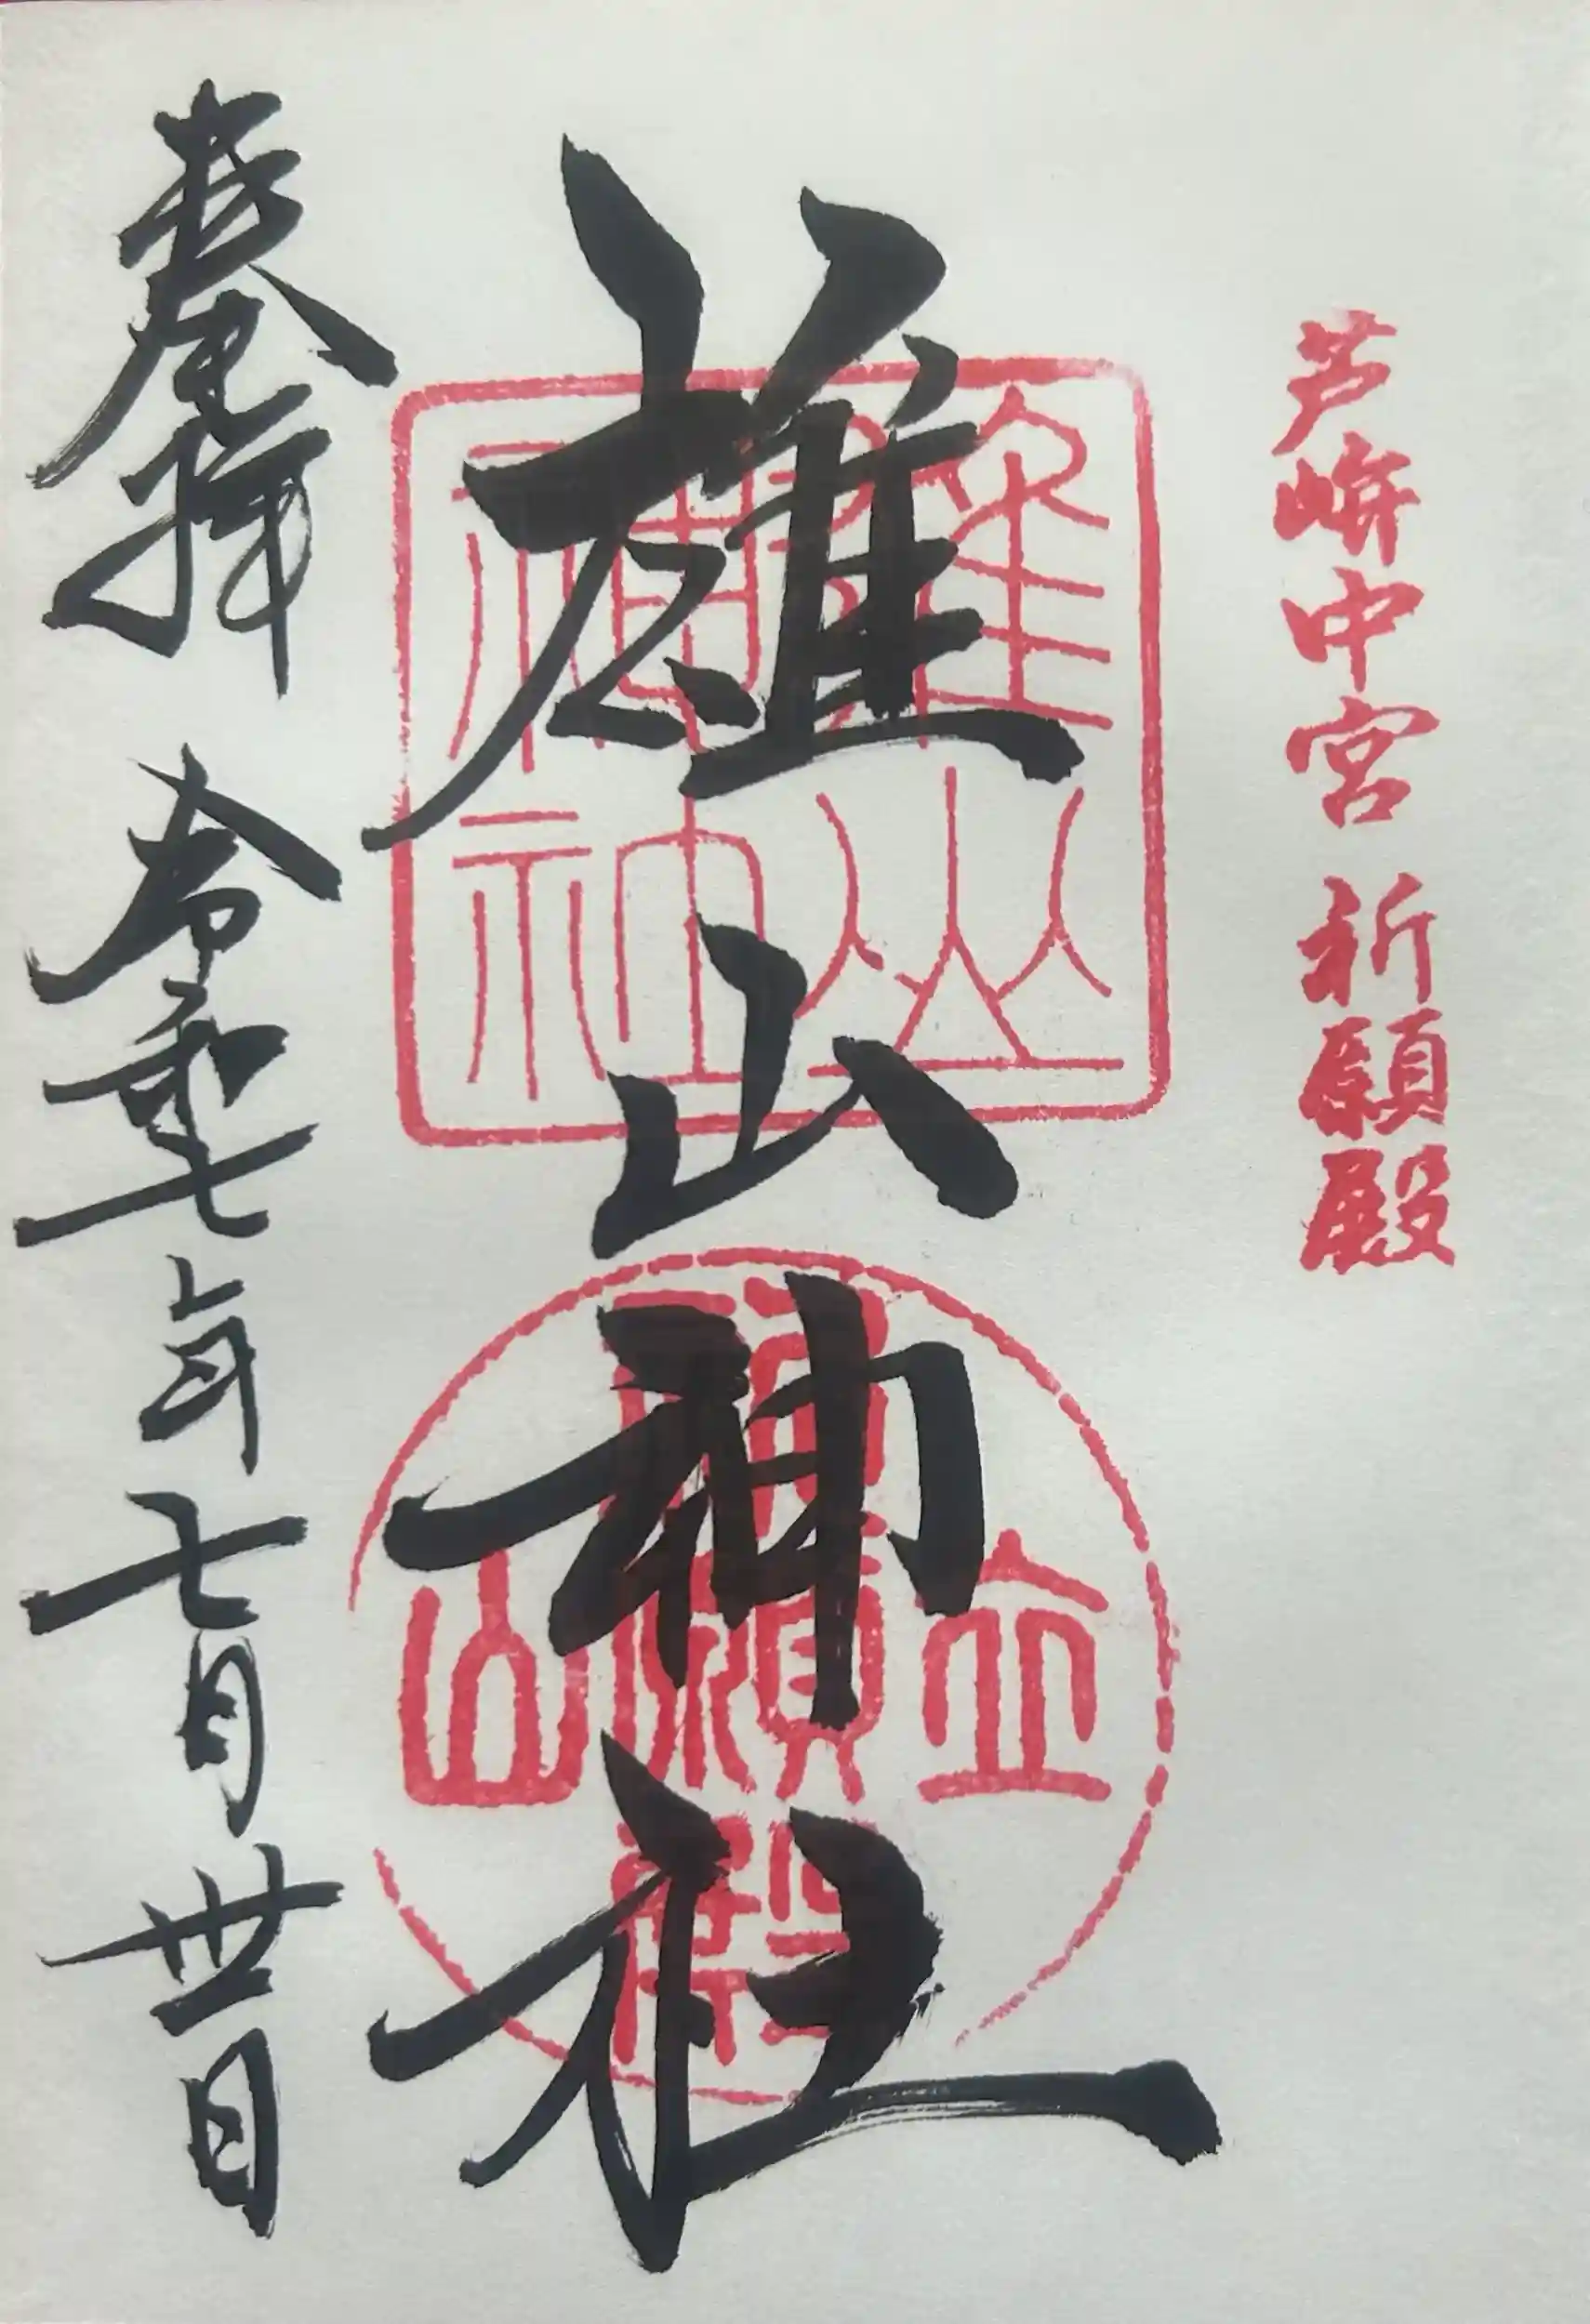 芦峅中宮 祈願殿
雄山神社
奉拝 令和七年七月廿日
雄山
神神
立
祈願殿
山